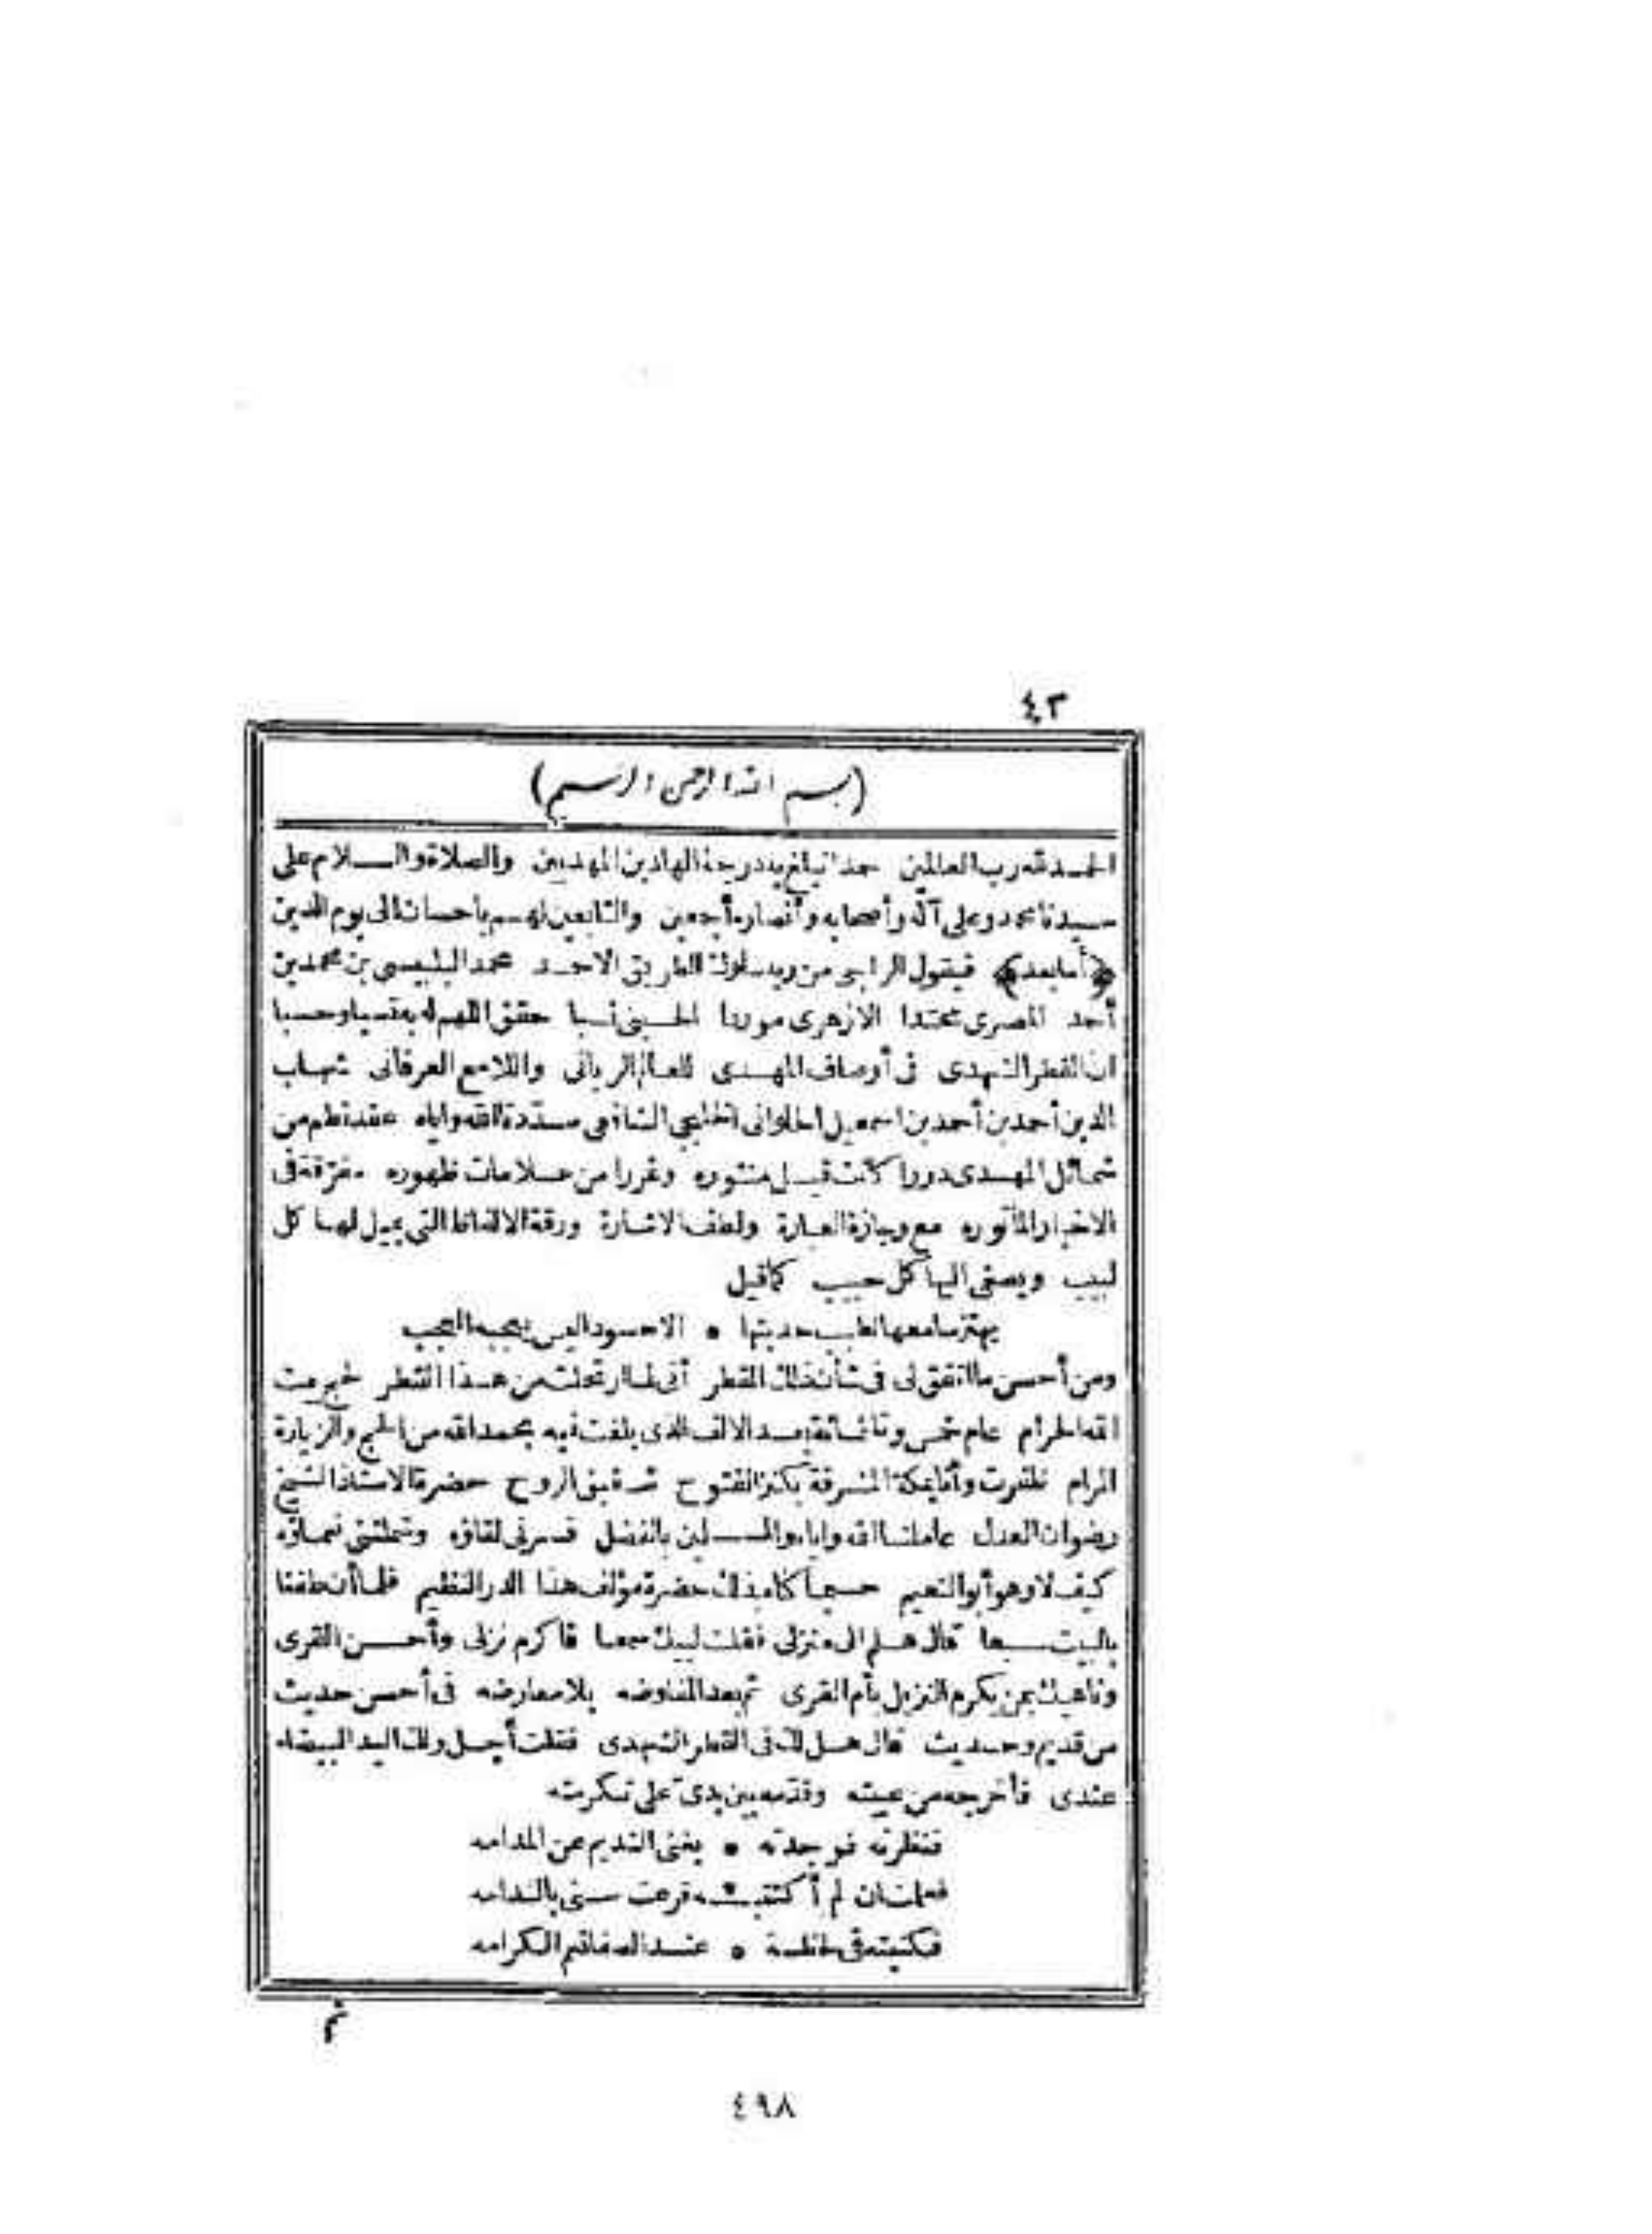 ٤٣
(بسم الله الرحمن الرحيم)
الحمد لله رب العالمين حمدا نبلغ به درجة الهادين المهديين والصلاة والسلام على
سيدنا محمد وعلى آله وأصحابه وأنصاره أجمعين والتابعين لهم باحسان الى يوم الدين
﴿أما بعد﴾ فيقول الراجى من ربه سلوك الطريق الاحمد محمد البلبيسى بن محمد بن
أحمد المصرى محتدا الازهرى موردا الحسينى نسبا حقق اللهم له به نسبا وحسبا
ان القطر الشهدى فى أوصاف المهدى للعالم الربانى واللامع العرفانى شهاب
الدين أحمد بن أحمد بن اسمعيل الحلوانى الخليجى الشافعى مددة الله واياه عقد نظم من
شمائل المهدى دررا كانت قبل منثوره وغررا من علامات ظهوره مفرقة فى
الاخبار المأثوره مع وجازة العبارة ولطف الاشارة ورقة الالفاظ التى يميل لها كل
لبيب ويصغى اليها كل حبيب كما قيل
يهتز سامعها لطيب حديثها • الا حسود اليس يعجبه العجب
ومن أحسن ما اتفق لى فى شأن ذلك القطر أنى لما ارتحلت من هذا القطر لخير بيت
الله الحرام عام خمس وثلثمائة بعد الالف الذى بلغت فيه بحمد الله من الحج والزيارة
المرام ظفرت وأنا بمكة المشرفة بكنز الفتوح شقيق الروح حضرة الاستاذ الشيخ
رضوان العدل عاملنا الله واياه والمسلمين بالفضل فسرنى لقاؤه وشملتنى نعماؤه
كيف لا وهو أبو النعيم حسبما كناه بذلك حضرة مؤلف هذا الدر النظيم فلما أن طفنا
بالبيت سبعا قال هلم الى منزلى فقلت لبيك سمعا فاكرم نزلى وأحسن القرى
وناهيك بمن يكرم النزيل بأم القرى ثم بعد المفاوضه بلا معارضه فى أحسن حديث
من قديم وحديث قال هل لك فى القطر الشهدى فقلت أجل ولك اليد البيضاء
عندى فأخرجه من عيبته وقدمه بين يدى على تكرمته
فنظرته فوجدته • يغنى النديم عن المدامه
فعلمت ان لم أكتتبـــه قرعت سنى بالندامه
فكتبته فى لحظة • عند المقام الكرامه
ثم
٤٩٨